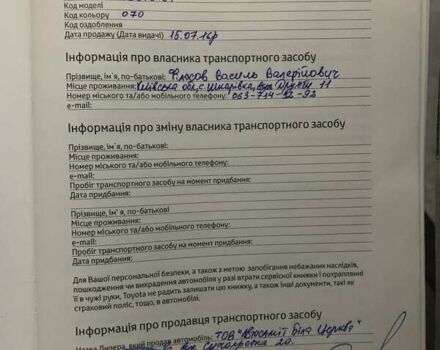 Код моделі
Код кольору 070
Код оздоблення
Дата продажу (Дата видачі) 15.07.16р
Інформація про власника транспортного засобу
Прізвище, ім'я, по-батькові: Василь Валерійович
Місце проживання: Київська обл, с. Шкарівка, вул 11
Номер міського та/або мобільного телефону: 063-714-92-92
e-mail:
Інформація про зміну власника транспортного засобу
Прізвище, ім'я, по-батькові:
Місце проживання:
Номер міського та/або мобільного телефону:
e-mail:
Пробіг транспортного засобу на момент придбання:
Дата придбання:
Прізвище, ім'я, по-батькові
Місце проживання:
Номер міського та/або мобільного телефону:
e-mail:
Пробіг транспортного засобу на момент придбання:
Дата придбання:
Для Вашої персональної безпеки, а також з метою запобігання небажаних наслідків,
пошкодження чи викрадення автомобіля у разі втрати сервісної книжки і потраплянні
її в чужі руки, Toyota не радить залишати цю книжку, а також інші документи, такі як
страховий поліс, тощо, в автомобілі.
Інформація про продавця транспортного засобу
Назва Дилера, який продав автомобіль: ТОВ "Автосаміт Біла Церква"
вул 20.